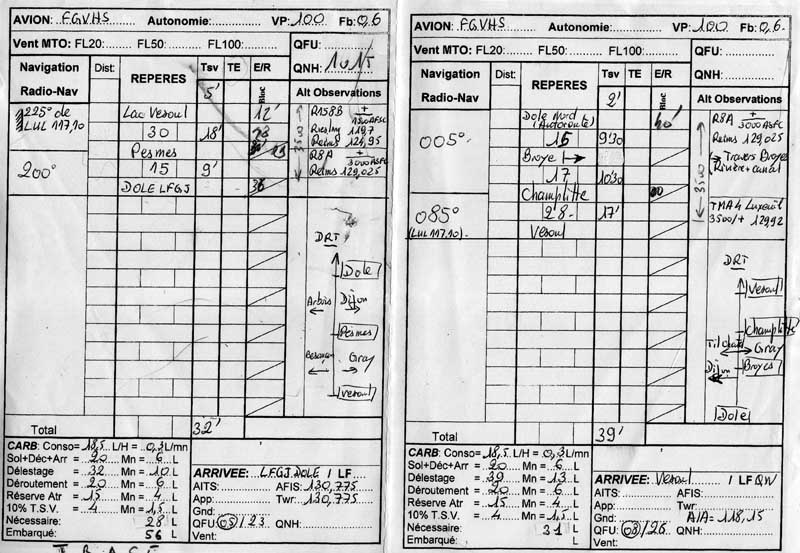 AVION: F.GVHS Autonomie: VP: 100 Fb: 0,6
Vent MTO: FL20: FL50: FL100: QFU:
QNH: 1015
Navigation Dist: REPERES Tsv TE E/R
Radio-Nav 5' Bloc Alt Observations
225° de Lac Vesoul 12' R158B
LUL 117,10 30 18' Riesling 119,7
Reims 124,95
Pesmes R8A + 3000 ASFC
200° 15 9' Reims 129,025
DOLE LFGJ 36
DRT
Dole
Arbois Dijon
Pesmes
Besançon Gray
Vesoul
Total 32'
CARB: Conso= 18,5 L/H = 0,3 L/mn
Sol+Déc+Arr = 20 Mn = 6 L
Délestage = 32 Mn = 10 L
Déroutement = 20 Mn = 6 L
Réserve Atr = 15 Mn = 4 L
10% T.S.V. = 4 Mn = 1,5 L
Nécessaire: 28 L
Embarqué: 56 L
ARRIVEE: LFGJ DOLE / LF
AITS: AFIS: 130,775
App: Twr: 130,775
Gnd:
QFU: 05 / 23 QNH:
Vent:
AVION: F.GVHS Autonomie: VP: 100 Fb: 0,6
Vent MTO: FL20: FL50: FL100: QFU:
QNH:
Navigation Dist: REPERES Tsv TE E/R
Radio-Nav 2' Bloc Alt Observations
Dole Nord 40' R8A + 3000 ASFC
005° (Autoroute) Reims 129,025
15 9'30
Broye Travers Broye
17 10'30 Rivière + canal
Champlitte
085° 28 17' TMA 4 Luxeuil
(LUL 117,10) Vesoul 3500/+ 129,92
DRT
Vesoul
Champlitte
Til Chatel Gray
Dijon Broyes
Dole
Total 39'
CARB: Conso= 18,5 L/H = 0,3 L/mn
Sol+Déc+Arr = 20 Mn = 6 L
Délestage = 39 Mn = 13 L
Déroutement = 20 Mn = 6 L
Réserve Atr = 15 Mn = 4 L
10% T.S.V. = 4 Mn = 1,5 L
Nécessaire: 31 L
Embarqué: L
ARRIVEE: Vesoul / LF QW
AITS: AFIS:
App: Twr:
Gnd: A/A = 118,15
QFU: 08 / 26 QNH:
Vent: